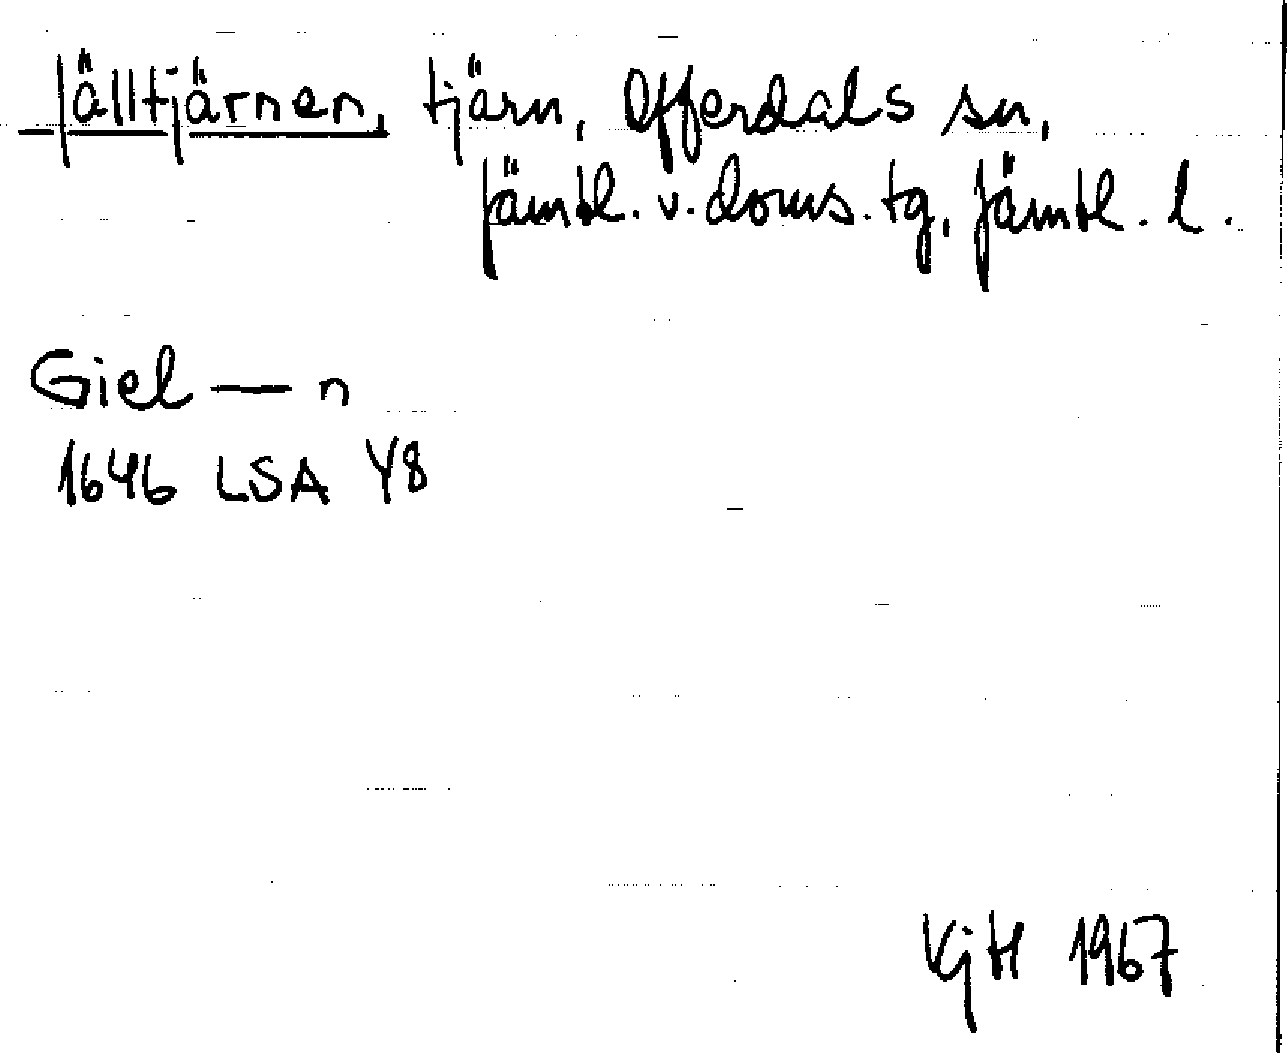 Jälltjärnen, tjärn, Offerdals sn,
Jämtl. v. doms. tg, Jämtl. l.
Giel — n
1646 LSA Y8
KjH 1967